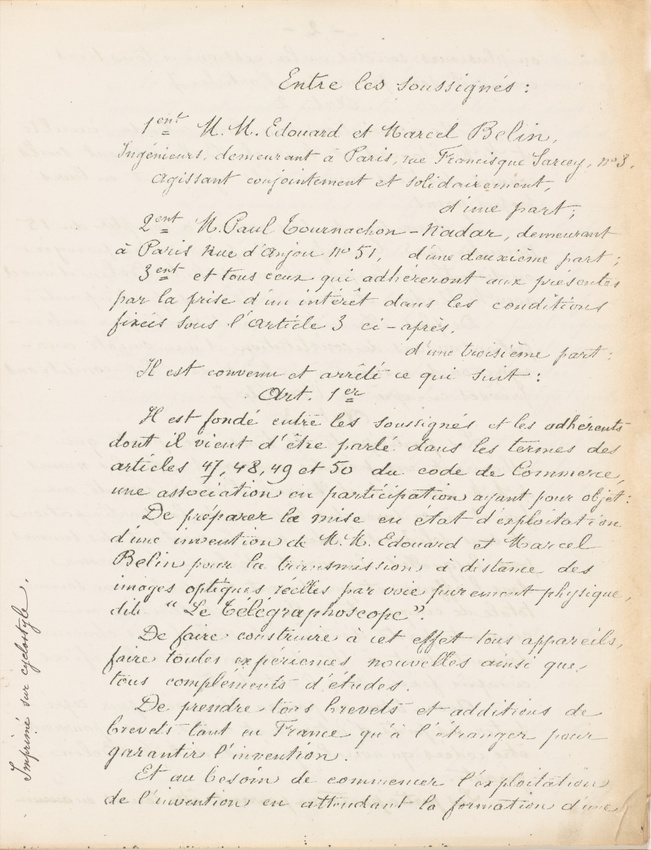 Entre les soussignés :
1ent M.M. Edouard et Marcel Belin,
Ingénieurs, demeurant à Paris, rue Francisque Sarcey, nº 3,
agissant conjointement et solidairement,
d'une part ;
2ent M. Paul Tournachon-Nadar, demeurant
à Paris Rue d'Anjou Nº 51, d'une deuxième part ;
3ent et tous ceux qui adhèreront aux présentes
par la prise d'un intérêt dans les conditions
fixées sous l'article 3 ci-après.
d'une troisième part :
Il est convenu et arrêté ce qui suit :
Art. 1er
Il est fondé entre les soussignés et les adhérents
dont il vient d'être parlé dans les termes des
articles 47, 48, 49 et 50 du code de Commerce,
une association en participation ayant pour objet :
De préparer la mise en état d'exploitation
d'une invention de M.M. Edouard et Marcel
Belin pour la transmission à distance des
images optiques réelles par voie purement physique,
dite "Le Télégraphoscope".
De faire construire à cet effet tous appareils,
faire toutes expériences nouvelles ainsi que
tous compléments d'études.
De prendre tous brevets et additions de
brevets tant en France qu'à l'étranger pour
garantir l'invention.
Et au besoin de commencer l'exploitation
de l'invention en attendant la formation d'une
Imprimé sur cyclostyle.